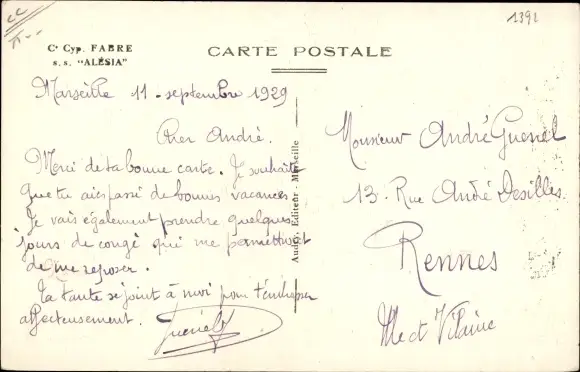 1392
Cie Cyp. FABRE
S.S. "ALÉSIA"
CARTE POSTALE
Marseille 11 - septembre 1929
Cher André.
Merci de ta bonne carte. Je souhaite
que tu aies passé de bonnes vacances.
Je vais également prendre quelques
jours de congé qui me permettront
de me reposer.
Ta tante se joint à moi pour t'embrasser
affectueusement.
Audry, Editeur - Marseille
Monsieur André Guenel
13 - Rue André Desilles.
Rennes
Ille et Vilaine